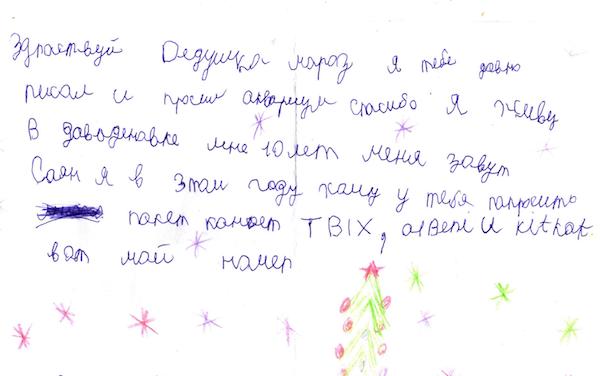 Здраствуй Дедушка мароз я тебе давно
писал и просил аквариум спасибо Я живу
В даводеновке мне 10 лет меня завут
Саян Я в этам году хачу у тебя папросить
пакет канфет ТВІХ, alBeni и kitkat.
вот май намер